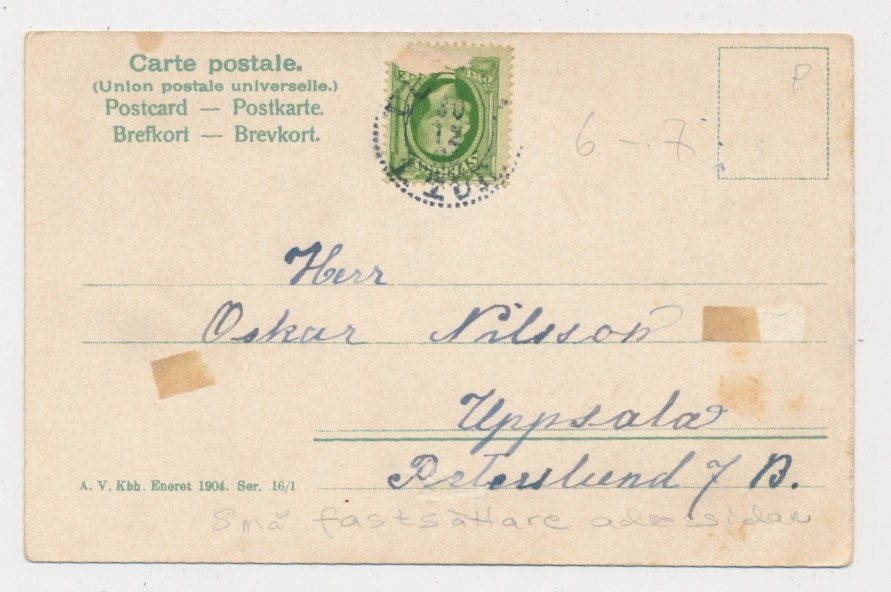 Carte postale.
(Union postale universelle.)
Postcard — Postkarte.
Brefkort — Brevkort.
P
6 - 7
Herr
Oskar Nilsson
Uppsala
Peterslund 7 B.
A. V. Kbh. Eneret 1904. Ser. 16/1
Små fastsättare adressidan